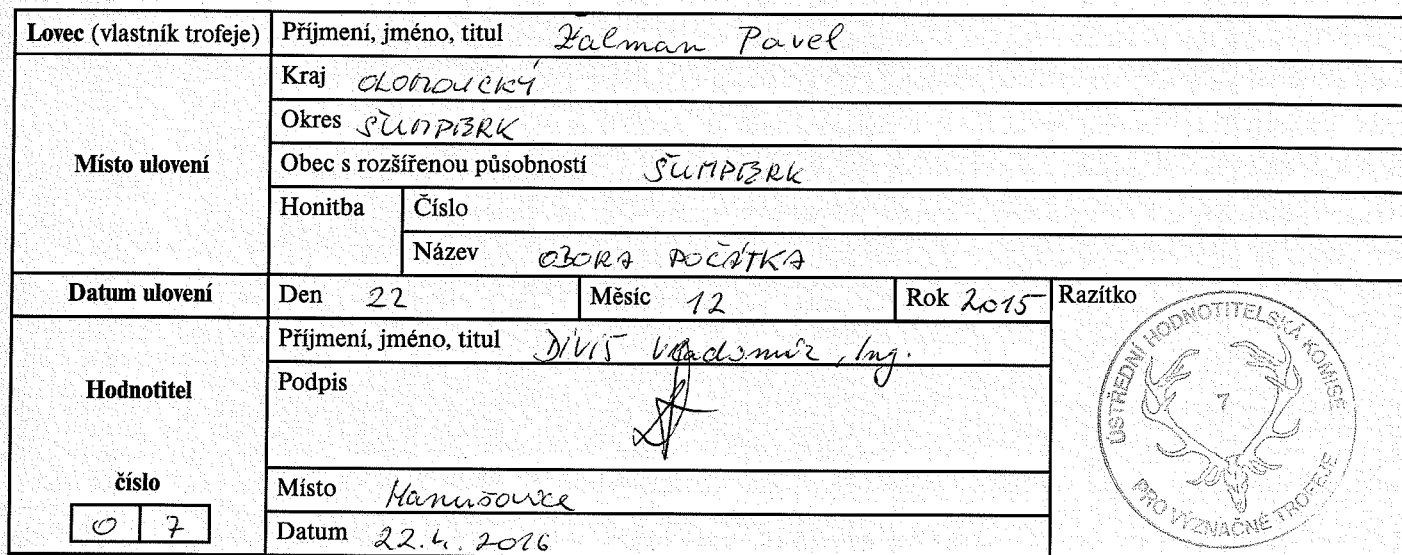 Lovec (vlastník trofeje) Příjmení, jméno, titul Žalman Pavel
Místo ulovení
Kraj OLOMOUCKÝ
Okres ŠUMPERK
Obec s rozšířenou působností ŠUMPERK
Honitba Číslo
Název OBORA POČÁTKA
Datum ulovení Den 22 Měsíc 12 Rok 2015 Razítko
Hodnotitel
Příjmení, jméno, titul DIVIŠ Vladomír, Ing.
Podpis
číslo
0 7
Místo Hanušovice
Datum 22.4.2016
ÚSTŘEDNÍ HODNOTITELSKÁ KOMISE
7
PRO VÝZNAČNÉ TROFEJE